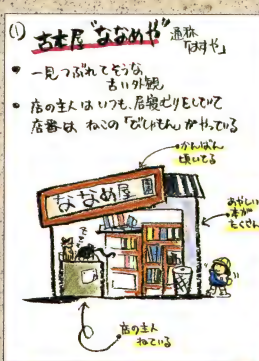 (1) 古本屋"ななめや" 通称
「はすや」
• 一見つぶれてそうな
古い外観
• 店の主人はいつも、居寝むりをしていて
店番は ねこの「びじゃもん」がやっている
かんばん
傾いてる
ななめ屋
あやしい
本が
たくさん
店の主人
ねている